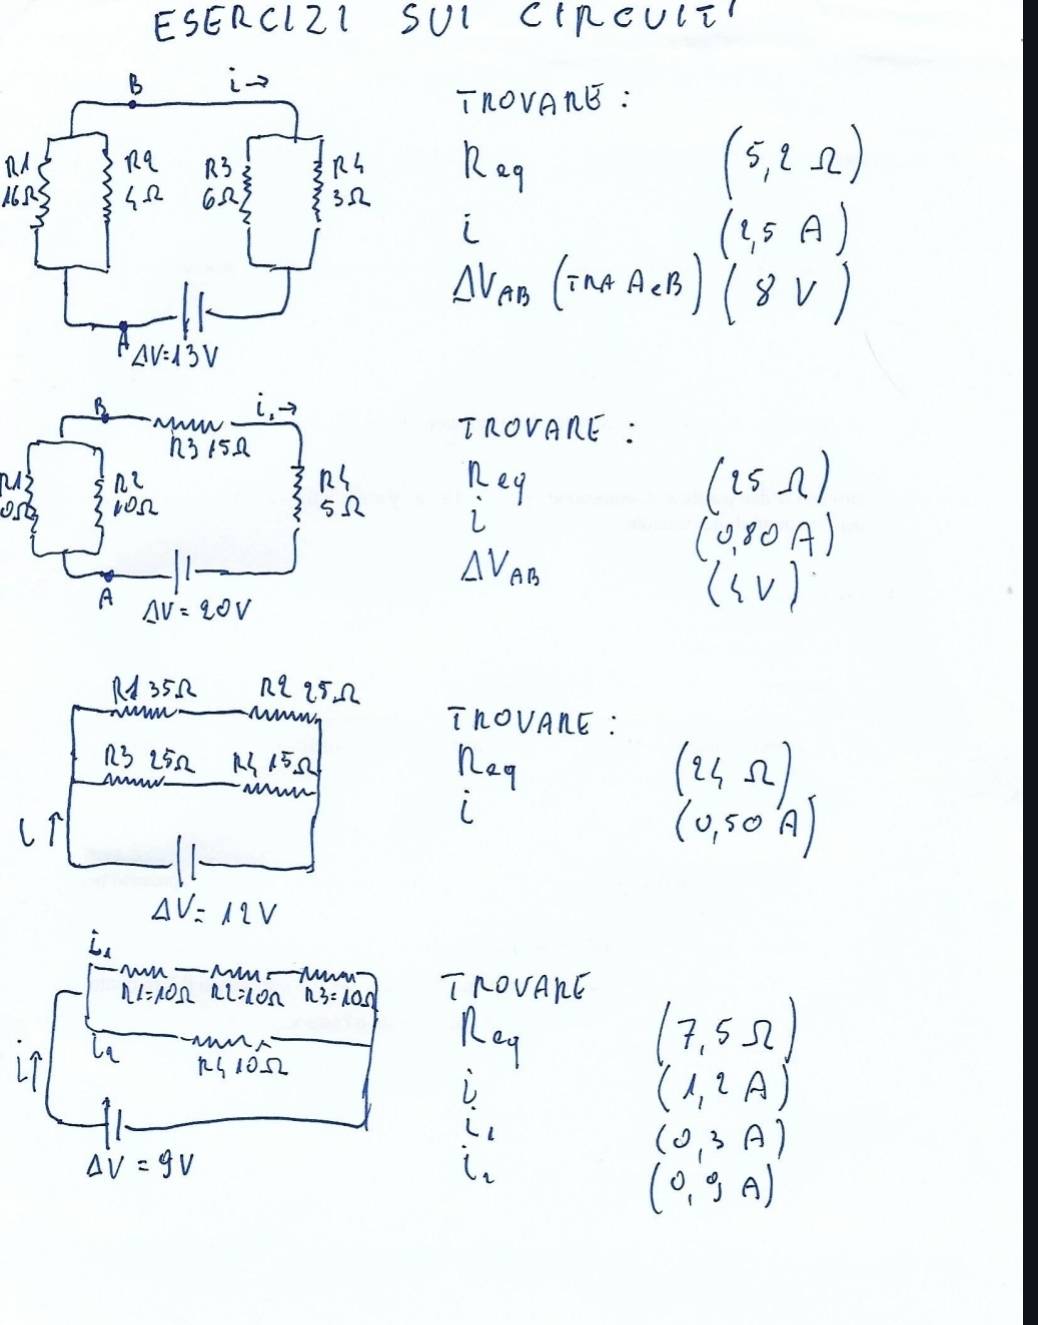 ESERCIZI SUI CIRCUITI
B
i→
R1
16Ω
R2
4Ω
R3
6Ω
R4
3Ω
A
ΔV=13V
TROVARE :
Req (5,2 Ω)
i (2,5 A)
ΔVAB (TRA A e B) (8 V)
B
i₁→
R3 15Ω
R1
0Ω
R2
10Ω
R4
5Ω
A
ΔV = 20V
TROVARE :
Req (25 Ω)
i (0,80 A)
ΔVAB (4 V)
R1 35Ω R2 25Ω
R3 25Ω R4 15Ω
i ↑
ΔV= 12V
TROVARE :
Req (24 Ω)
i (0,50 A)
i₁
R1=10Ω R2=10Ω R3=10Ω
i₂
R4 10Ω
i↑
ΔV = 9V
TROVARE
Req (7,5 Ω)
i (1,2 A)
i₁ (0,3 A)
i₂ (0,9 A)